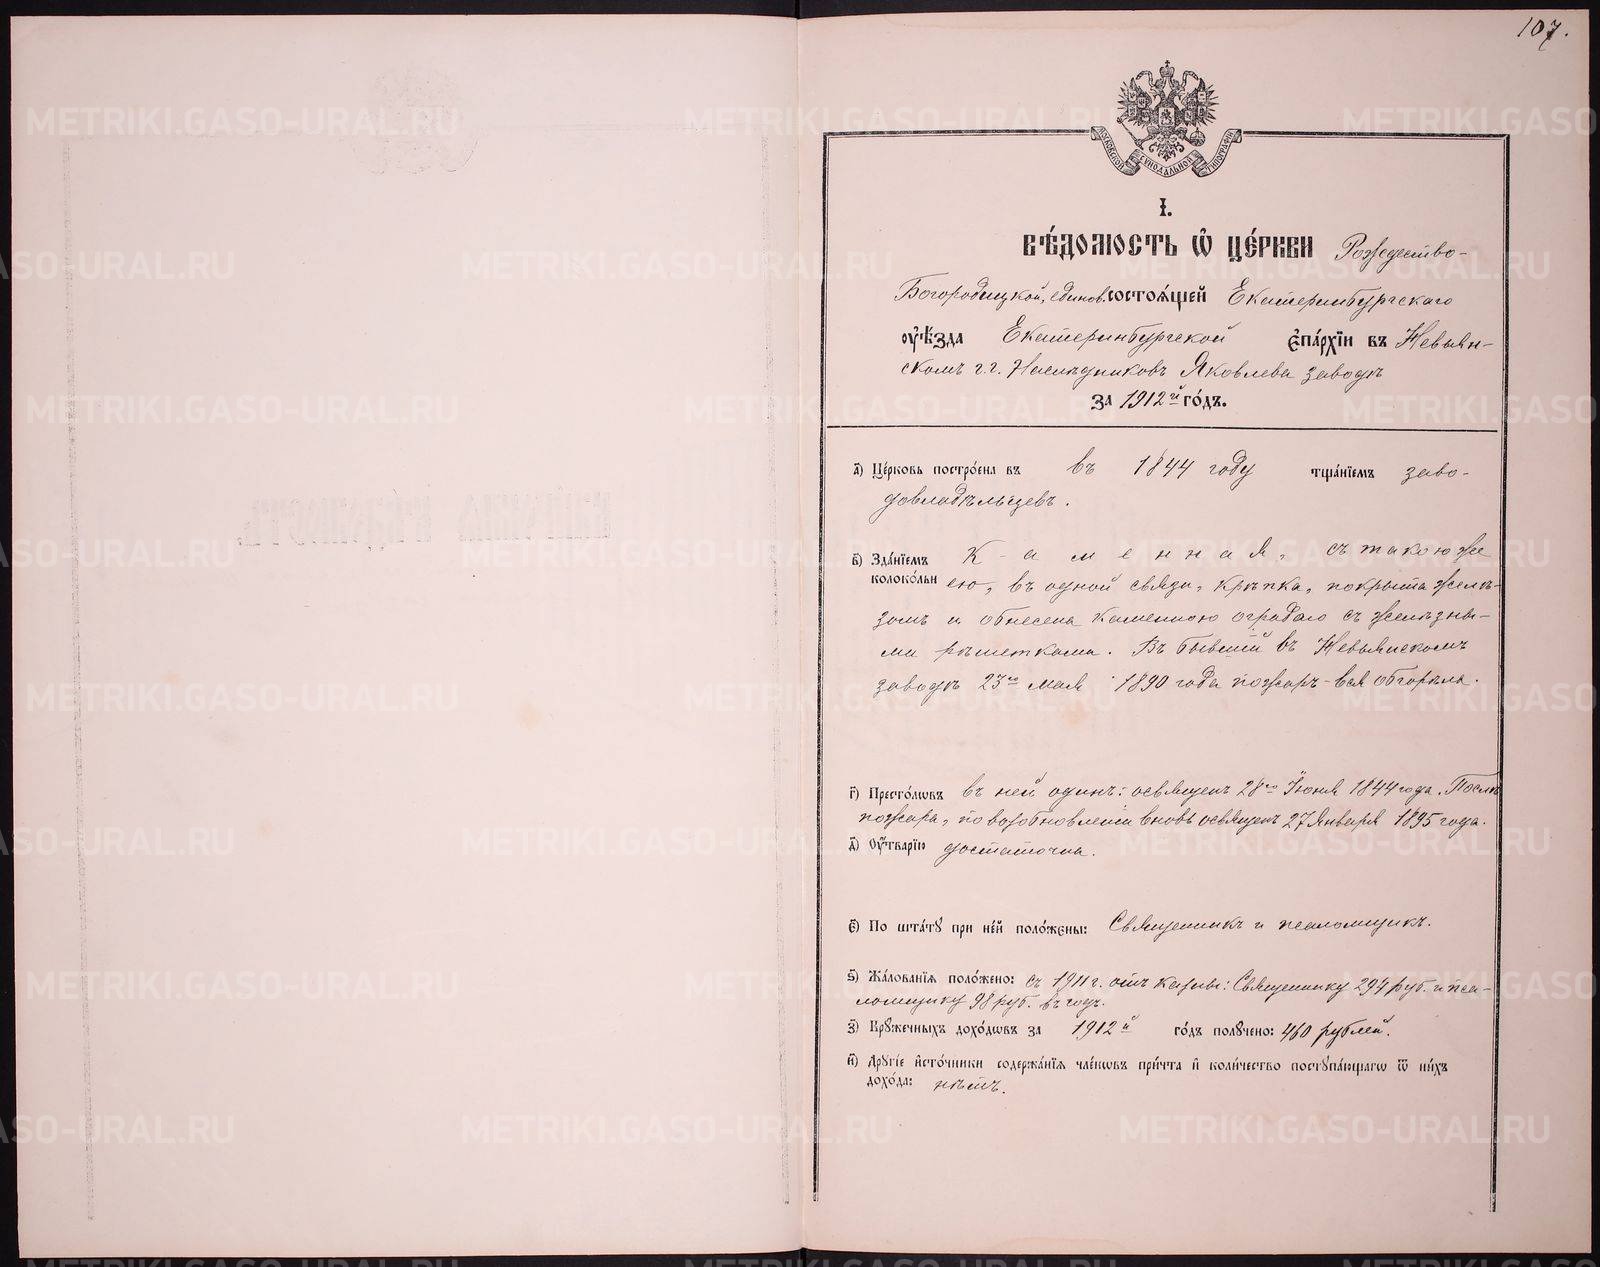 107.
МОСКОВСКОЙ СѴНОДАЛЬНОЙ ТИПОГРАФІИ
І.
ВѢ́ДОМОСТЬ Ѡ҆ ЦЕ́РКВИ Рождество-
Богородицкой, единов. СОСТОѦ́ЩЕЙ Екатеринбургскаго
ОУ҆ѢЗДА Екатеринбургской Є҆ПА́РХІИ ВЪ Невьян-
скомъ г.г. Наслѣдниковъ Яковлева заводѣ
ЗА 1912й ГО́ДЪ.
а҃) Це́рковь постро́ена въ въ 1844 году тща́нїемъ заво-
довладѣльцевъ.
в҃) Зда́нїемъ Каменная, съ такою же
колоко́льн ею, въ одной связи, крѣпка, покрыта желѣ-
зомъ и обнесена каменною оградою съ желѣзны-
ми рѣшетками. Въ бывшій въ Невьянскомъ
заводѣ 23го мая 1890 года пожаръ - вся обгорѣла.
г҃) Престо́лѡвъ въ ней одинъ: освященъ 28го Іюня 1844 года. Послѣ
пожара, по возобновленіи вновь освященъ 27 Января 1895 года.
д҃) Оу҆́тварїю достаточна.
є҃) По шта́тꙋ при не́й поло́жены: Священникъ и псаломщикъ.
ѕ҃) Жа́лованїѧ поло́жено: съ 1911 г. отъ казны: Священнику 294 руб. и пса-
ломщику 98 руб. въ годъ.
з҃) Крꙋ́жечныхъ дохо́дѡвъ за 1912й го́дъ полꙋ́чено: 460 рублей.
и҃) Дрꙋгі́е и҆сто́чники содержа́нїѧ чле́нѡвъ при́чта и҆ коли́чество постꙋпа́ющагѡ ѿ ни́хъ
дохо́да: нѣтъ.
METRIKI.GASO-URAL.RU